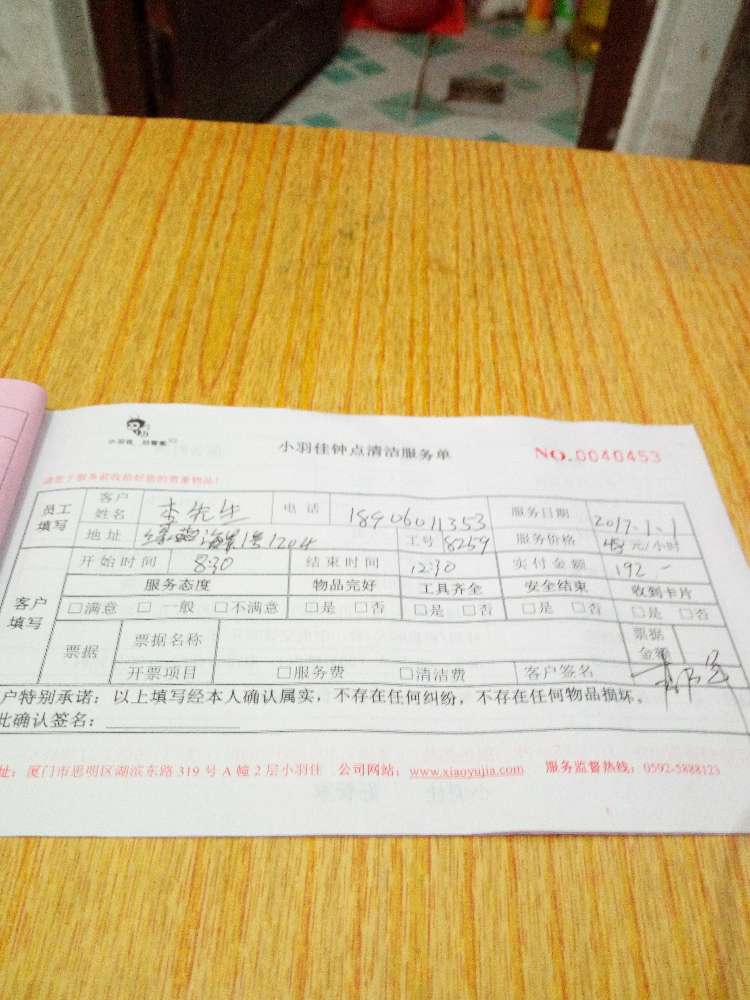 小羽佳
小羽佳钟点清洁服务单
NO.0040453
请您于服务前收拾好您的贵重物品!
员工填写 客户姓名 李先生 电话 18906011353 服务日期 2017.1.1
地址 海景1号1204 工号 8259 服务价格 48 元/小时
客户填写 开始时间 8:30 结束时间 12:30 实付金额 192
服务态度 物品完好 工具齐全 安全结束 收到卡片
□满意 □一般 □不满意 □是 □否 □是 □否 □是 □否 □是 □否
票据 票据名称 票据金额
开票项目 □服务费 □清洁费 客户签名
户特别承诺:以上填写经本人确认属实,不存在任何纠纷,不存在任何物品损坏。
此确认签名:
址:厦门市思明区湖滨东路319号A幢2层小羽佳 公司网站:www.xiaoyujia.com 服务监督热线:0592-5888123